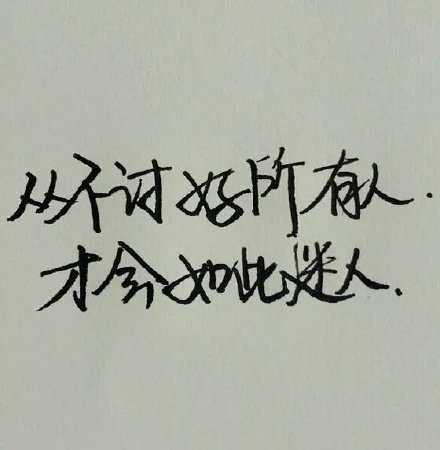 从不讨好所有人.
才会如此迷人.